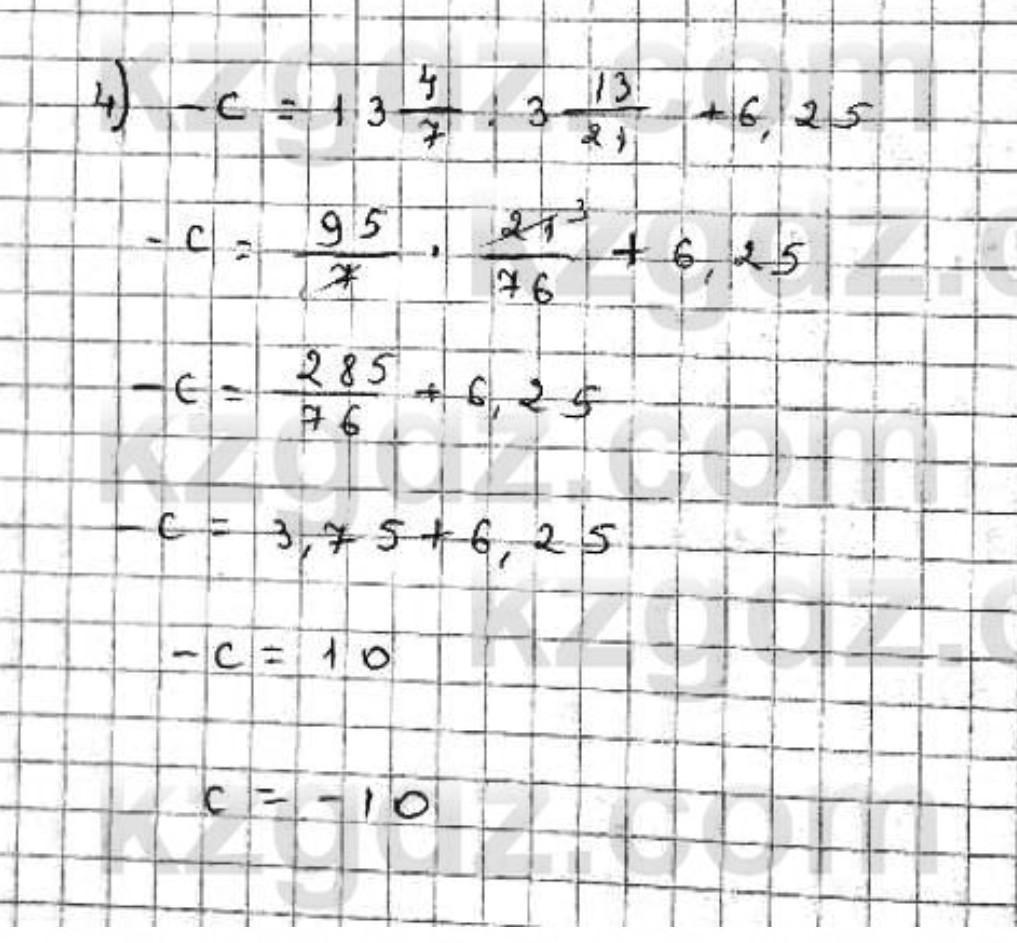 4) -c = 13 4/7 : 3 13/21 + 6,25
-c = 95/7 · 21³/76 + 6,25
-c = 285/76 + 6,25
-c = 3,75 + 6,25
-c = 10
c = -10
kzgdz.com
kzgdz.com
kzgdz.com
kzgdz.com
kzgdz.com